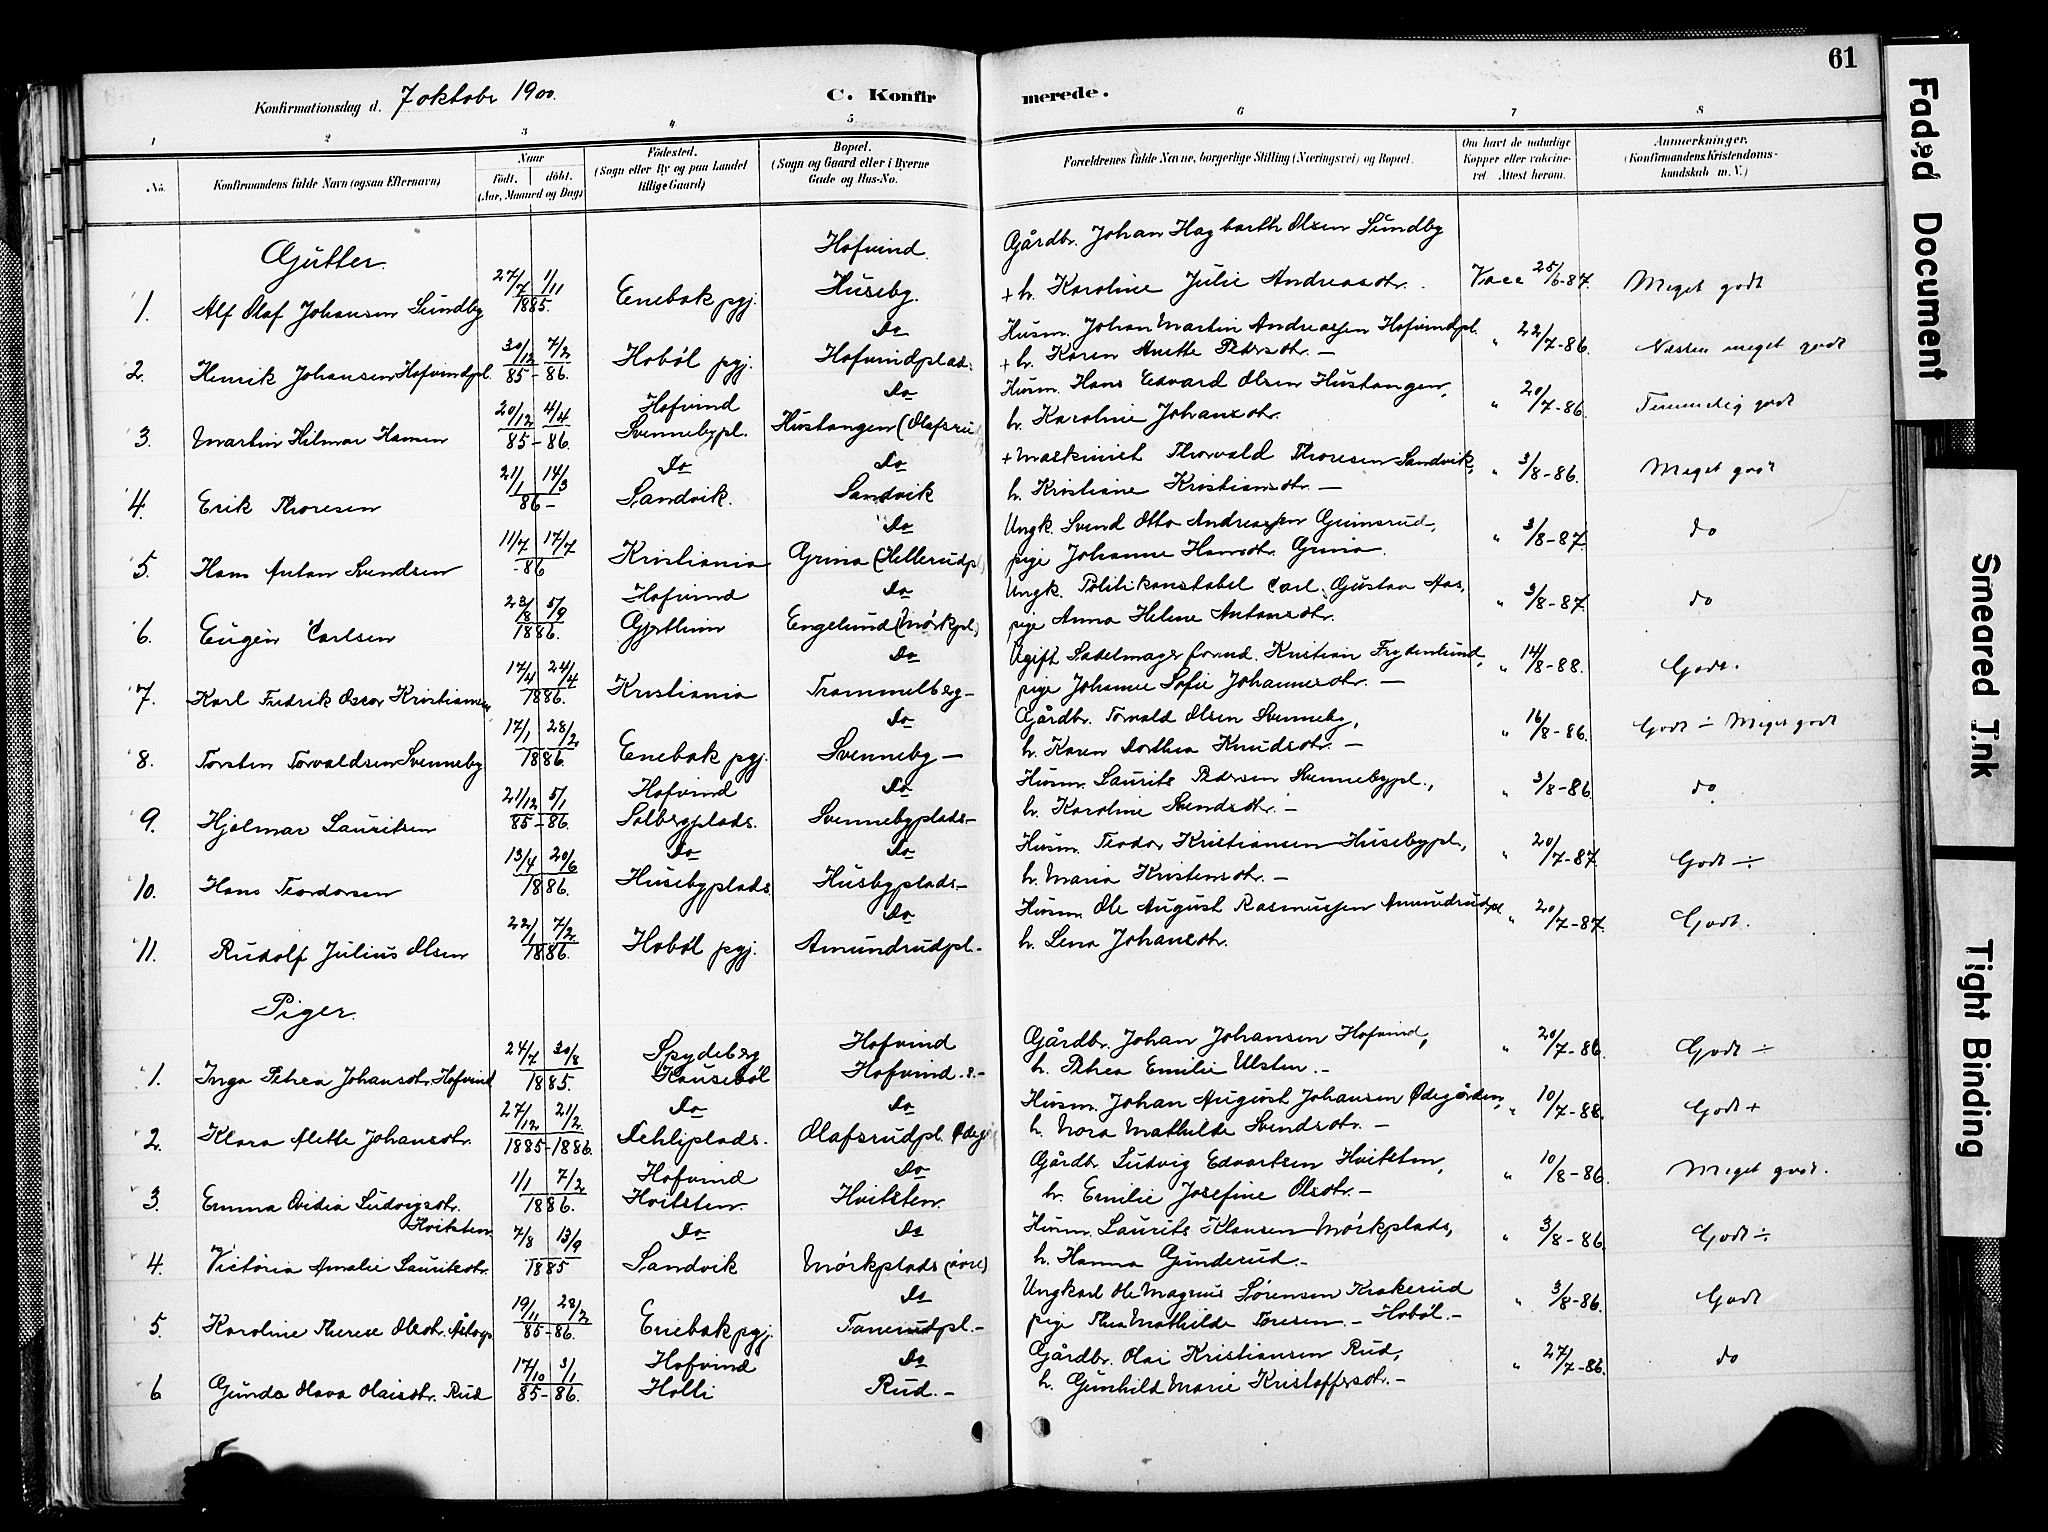 61
Konfirmationsdag d. 7 oktober 1900.
C. Konfirmerede.
1 2 3 4 5 6 7 8
No.
Konfirmandens fulde Navn (ogsaa Efternavn)
Naar
født. døbt.
(Aar, Maaned og Dag)
Fødested.
(Sogn eller By og paa Landet
tillige Gaard)
Bopæl.
(Sogn og Gaard eller i Byerne
Gade og Hus-No.
Forældrenes fulde Navne, borgerlige Stilling (Næringsvei) og Bopæl.
Om havt de naturlige
Kopper eller vakcine-
ret. Attest herom.
Anmærkninger.
(Konfirmandens Kristendoms-
kundskab m. V.)
Gutter.
Hofvind. Gårdbr. Johan Hagbarth Olsen Sundby
1. Alf Olaf Johansen Sundby 27/7 1/11 1885. Enebak pgj. Huseby. + h. Karoline Julie Andreasdtr. Vacc 25/6-87. Meget godt
do Husm. Johan Martin Andreassen Hofvindpl.
2. Henrik Johansen Hofvindpl. 30/12 7/2 85-86. Hobøl pgj. Hofvindplads. + h. Karen Anette Pedersdtr. — " 22/7-86. Næsten meget godt
Hofvind do Husm. Hans Edvard Olsen Hustangen,
3. Martin Hilmar Hansen 20/12 4/4 85-86. Svennebypl. Hustangen (Olafsrud h. Karoline Johansdtr. " 20/7-86. Temmelig godt
do do + Maskinist Thorvald Thoresen Sandvik,
4. Erik Thoresen 21/1 14/3 86- Sandvik. Sandvik h. Kristiane Kristiansdtr. — " 3/8-86. Meget godt
do Ungk. Svend Otto Andreassen Grimsrud,
5. Hans Anton Svendsen 11/7 17/7 -86 Kristiania Grina (Hellerudpl) pige Johanne Hansdtr. Grina. " 3/8-87. do
Hofvind do Ungk. Politikonstabel Carl Gustav Aas,
6. Eugén Carlsen 23/8 5/9 1886. Gjølhim Engelund (Mørkpl) pige Anna Helene Antonsdtr. " 3/8-87. do
do Ugift Sadelmager Kristian Frydenlund,
7. Karl Fredrik Oscar Kristiansen 17/4 24/4 1886. Kristiania Trommelberg- pige Johanne Sofie Johannesdtr. — " 14/8-88. Godt.
do Gårdbr. Torvald Olsen Svenneby,
8. Torsten Torvaldsen Svenneby 17/1 28/2 1886. Enebak pgj. Svenneby — h. Karen Dorthea Knudsdtr. — " 16/8-86. Godt ÷ Meget godt
Hofvind do Husm. Laurits Pedersen Svennebypl.,
9. Hjalmar Lauritsen 21/12 5/1 85-86. Solbergplads. Svennebyplads- h. Karoline Svendsdtr. — " 3/8-86. do
do do Husm. Teodor Kristiansen Husebypl.,
10. Hans Teodorsen 13/4 20/6 1886. Husebyplads Husbyplads- h. Maria Kristensdtr. — " 20/7-87 Godt ÷
do Husm. Ole August Rasmussen Amundrudpl
11. Rudolf Julius Olsen 22/1 7/2 1886. Hobøl pgj. Amundrudpl.- h. Lena Johansdtr. " 20/7-87. Godt.
Piger.
Spydeberg Hofvind Gårdbr. Johan Johansen Hofvind,
1. Inga Petrea Johansdtr. Hofvind 24/7 30/8 1885. Hausebøl Hofvind. s.- h. Petrea Emilie Ulsten. - " 20/7-86. Godt ÷
do do Husm. Johan August Johansen Ødegården,
2. Klara Alette Johansdtr. 27/12 21/2 1885-1886. Dehliplads. Olafsrudpl. Ødeg h. Nora Mathilde Svendsdtr. — " 10/7-88. Godt +
Hofvind do Gårdbr. Ludvig Edvartsen Hvitsten,
3. Emma Ovidia Ludvigsdtr. 1/1 7/2 1886. Hvitsten. Hvitsten. h. Emilie Josefine Olsdtr. — " 10/8-86. Meget godt.
Hvitsten. do do Husm. Laurits Klausen Mørkplads,
4. Victoria Amalie Lauritsdtr. 7/8 13/9 1885 Sandvik Mørkplads (øvre) h. Hanna Gunderud. — " 3/8-86. Godt ÷
do Ungkarl Ole Magnus Sørensen Krakerud
5. Karoline Therese Olsdtr. 19/11 28/2 85-86. Enebak pgj. Tanerudpl. — pige Thea Mathilde Toresen. — Hobøl. — " 3/8-86. Godt
Hofvind do Gårdbr. Olai Kristiansen Rud,
6 Gunda Hava Olaisdtr. Rud 17/10 3/1 85-86. Holli Rud. — h. Gunhild Marie Kristoffersdtr. — " 27/7-86. do
Faded Document
Smeared Ink
Tight Binding